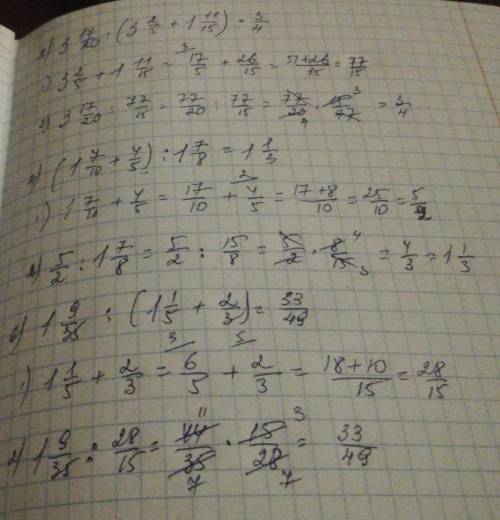 д) 3 17/20 : (3 2/5 + 1 11/15) = 3/4
1) 3 2/5 + 1 11/15 = 3 17/5 + 26/15 = 51+26/15 = 77/15
2) 3 17/20 : 77/15 = 77/20 : 77/15 = 77/20 4 · 15/77 3 = 3/4
(1 7/10 + 4/5) : 1 7/8 = 1 1/3
1) 1 7/10 + 4/5 = 17/10 + 2 4/5 = 17+8/10 = 25/10 = 5/2
2) 5/2 : 1 7/8 = 5/2 : 15/8 = 5/2 · 8/15 4 3 = 4/3 = 1 1/3
1 9/35 : (1 1/5 + 2/3) = 33/49
1) 1 1/5 + 2/3 = 3 6/5 + 5 2/3 = 18+10/15 = 28/15
2) 1 9/35 : 28/15 = 44/35 11 7 · 15/28 3 7 = 33/49